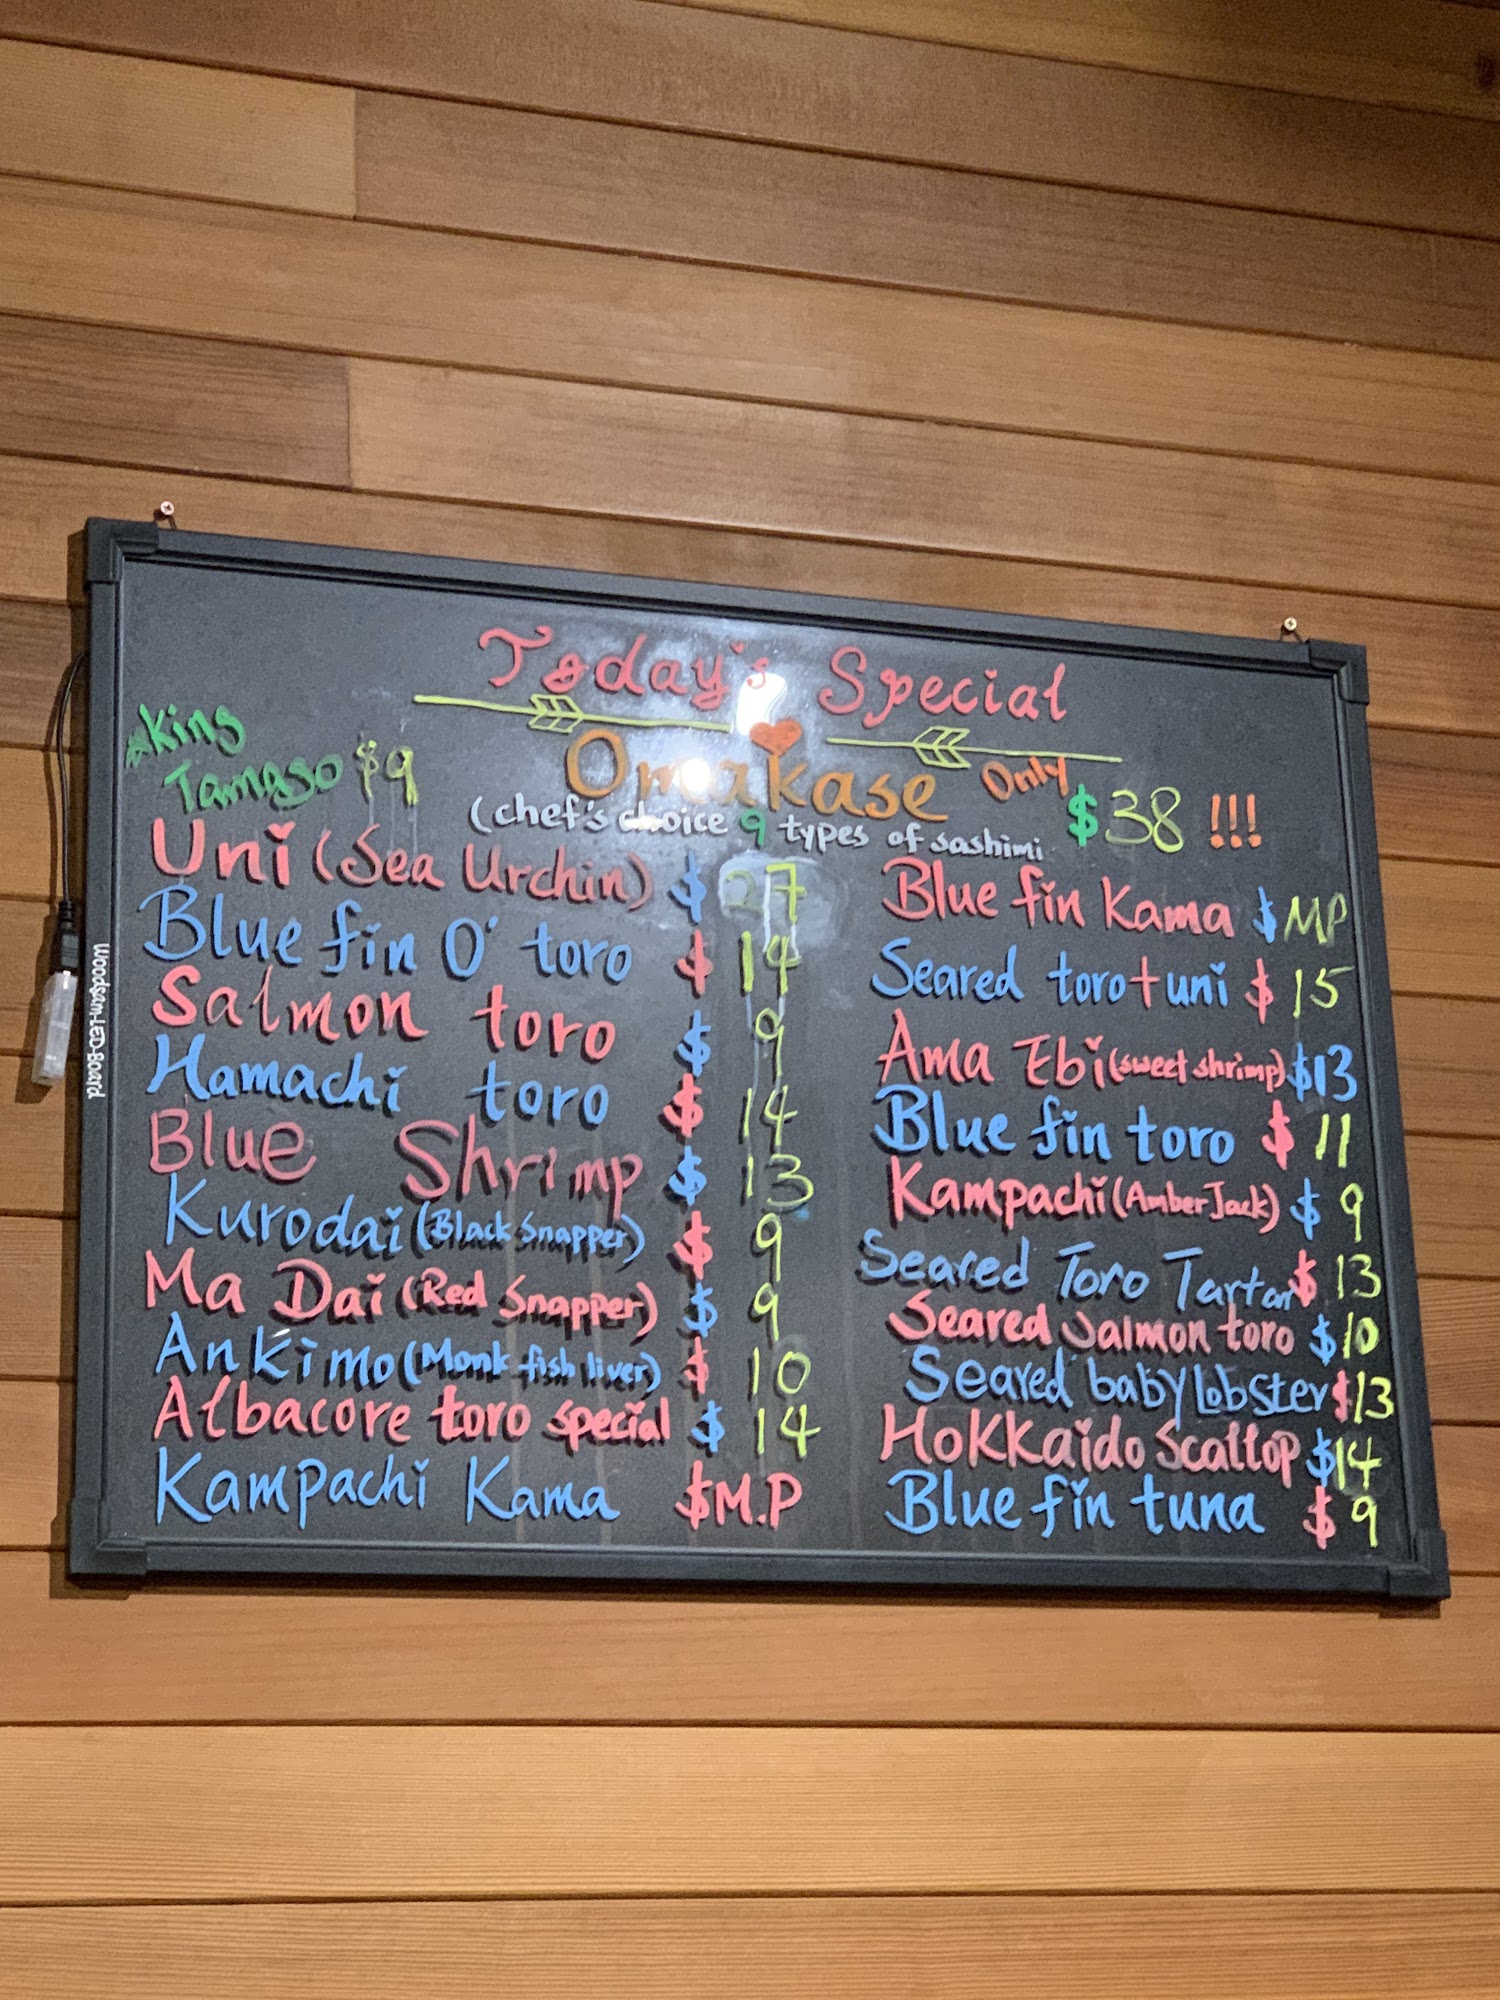 Today's Special
King
Tamago $9
Omakase Only $38 !!!
(chef's choice 9 types of sashimi
Uni (Sea Urchin) $ 27
Blue fin O' toro $ 14
Salmon toro $ 9
Hamachi toro $ 14
Blue Shrimp $ 13
Kurodai (Black Snapper) $ 9
Ma Dai (Red Snapper) $ 9
Ankimo (Monk fish liver) $ 10
Albacore toro special $ 14
Kampachi Kama $M.P
Blue fin Kama $ MP
Seared toro + uni $ 15
Ama Ebi (sweet shrimp) $13
Blue fin toro $ 11
Kampachi (Amber Jack) $ 9
Seared Toro Tartar $ 13
Seared Salmon toro $10
Seared baby Lobster $13
Hokkaido Scallop $14
Blue fin tuna $ 9
Woodsam-LED-Board